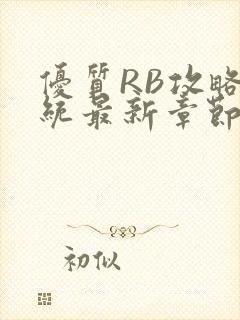 優質RB攻略
統最新章節
初似